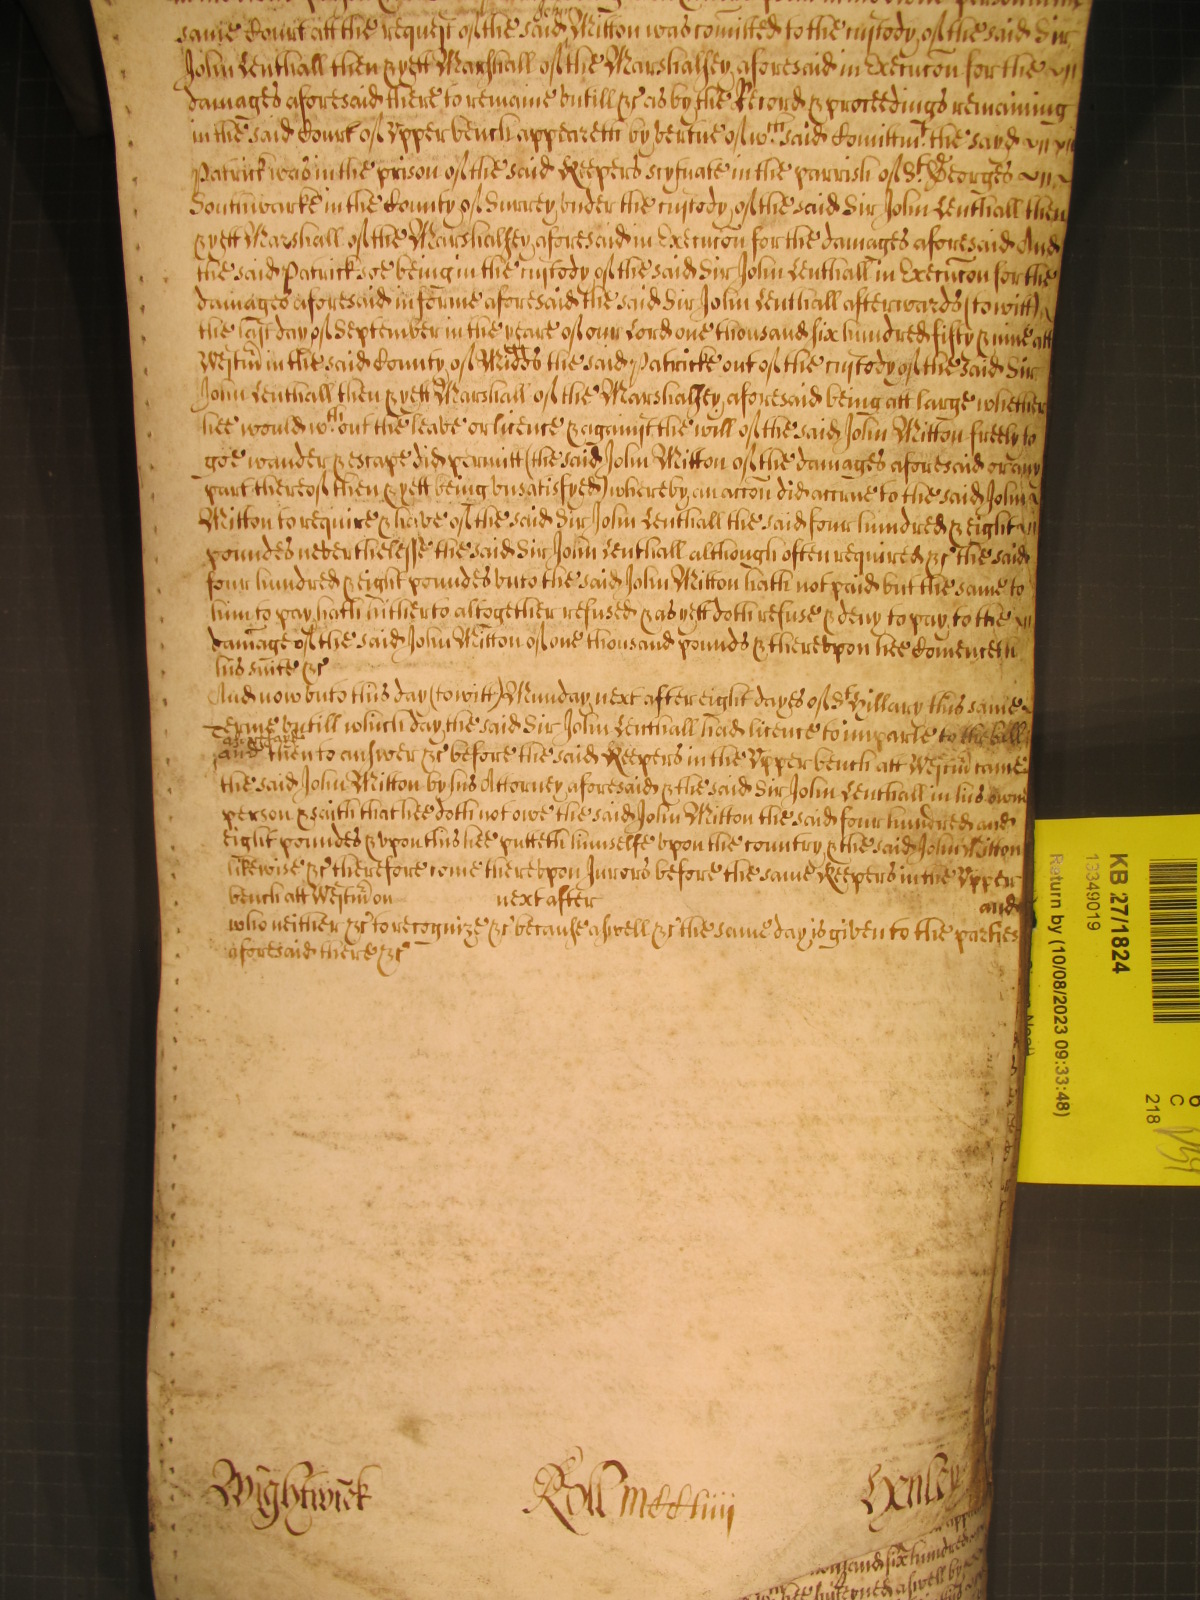 same Court att the request of the said John Mitton was comitted to the custody of the said Sir
John Lenthall then & yett Marshall of the Marshalsey aforesaid in Execucon for the
damages aforesaid there to remaine untill &c as by the Record & proceedings remaining
in the said Court of Upper bench appeareth by vertue of wch said Comittmt the sayd
Patrick was in the prison of the said Keepers scytuate in the parrish of St Georges
Southwarke in the County of Surrey under the custody of the said Sir John Lenthall then
& yett Marshall of the Marshalsey aforesaid in Execucon for the damages aforesaid And
the said Patrick soe being in the custody of the said Sir John Lenthall in Execucon for the
damages aforesaid in forme aforesaid the said Sir John Lenthall afterwards (to witt)
the last day of September in the yeare of our Lord one thousand six hundred fifty & nine att
Westm in the said County of Midds the said Patricke out of the custody of the said Sir
John Lenthall then & yett Marshall of the Marshalsey aforesaid being att large whether
hee would wthout the leave or licence & against the will of the said John Mitton freely to
goe wander & escape did permitt (the said John Mitton of the damages aforesaid or any
part thereof then & yett being unsatisfyed) whereby an accon did accrue to the said John
Mitton to require & have of the said Sir John Lenthall the said four hundred & eight
poundes neverthelesse the said Sir John Lenthall although often required &c the said
four hundred & eight poundes unto the said John Mitton hath not paid but the same to
him to pay hath hitherto altogether refused & as yett doth refuse & deny to pay to the
damage of the said John Mitton of one thousand pounds & thereupon hee Comenceth
his suite &c
And now unto this day (to witt) Munday next after eight dayes of St Hillary this same
Terme untill which day the said Sir John Lenthall had licence to imparle to the bill
aforesayd
and then to answer &c before the said Keepers in the Upper bench att Westm came
the said John Mitton by his Attorney aforesaid & the said Sir John Lenthall in his owne
person & saith that hee doth not owe the said John Mitton the said four hundred and
eight poundes & upon this hee putteth himselfe upon the country & the said John Mitton
likewise &c therefore come thereupon Jurors before the same Keepers in the Upper
bench att Westm on next after and
who neither &c to recognize &c because aswell &c the same day is given to the parties
aforesaid there &c
Wightwick Roll mccliiij Henley
KB 27/1824
13349019
Return by (10/08/2023 09:33:48)
6
C
218